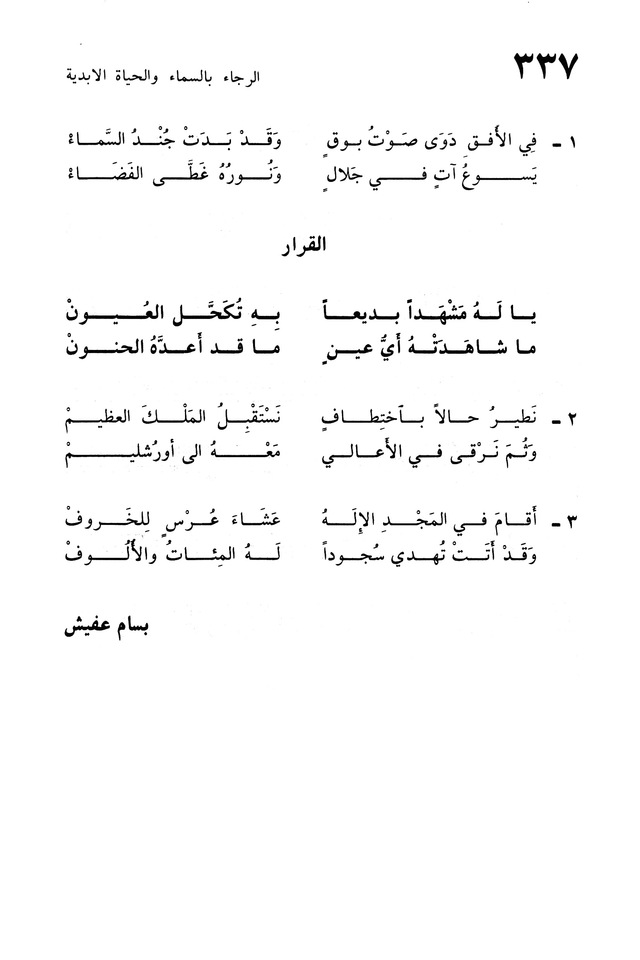 ٣٣٧
الرجاء بالسماء والحياة الابدية
١ - فِي الأَفقِ دَوَى صَوْتُ بوقٍ وَقَدْ بَدَتْ جُنْدُ السَّماءْ
يَسوعُ آتٍ في جَلالٍ وَنُورُهُ غَطَّى الفَضَاءْ
القرار
يا لَهُ مَشْهَداً بديعاً بِهِ تُكَحَّل العُيونْ
ما شاهَدَتْهُ أَيُّ عينٍ ما قد أَعدَّهُ الحنونْ
٢ - نَطيرُ حالاً بٱختِطافٍ نَسْتَقْبِلُ المَلْكَ العظيمْ
وَثُمَ نَرْقى في الأَعالي مَعْهُ الى أورُشليمْ
٣ - أَقامَ في المَجْدِ الإِلَهُ عَشَاءَ عُرْسٍ لِلخَروفْ
وَقَدْ أَتَتْ تُهدي سُجوداً لَهُ المِئاتُ والأُلُوفْ
بسام عفيش